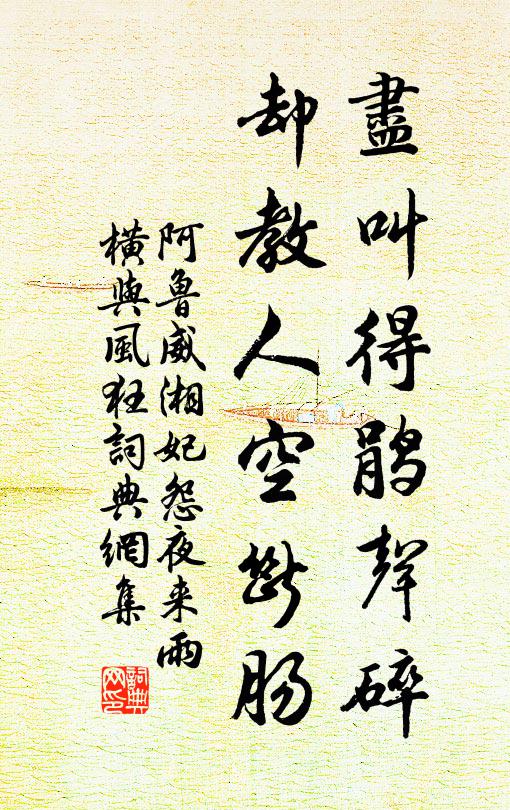 盡叫得鵑聲碎
却教人空斷肠
阿魯威湘妃怨夜来雨
橫與風狂詞典網集
詞典
网印